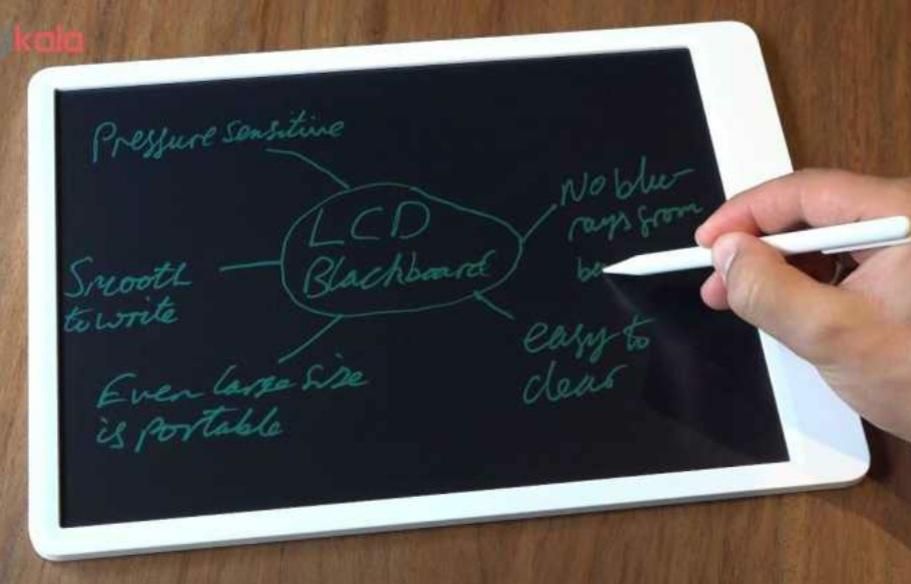 kala
Pressure sensitive
LCD
Blackboard
No blue
rays from
Smooth
to write
easy to
clear
Even large size
is portable